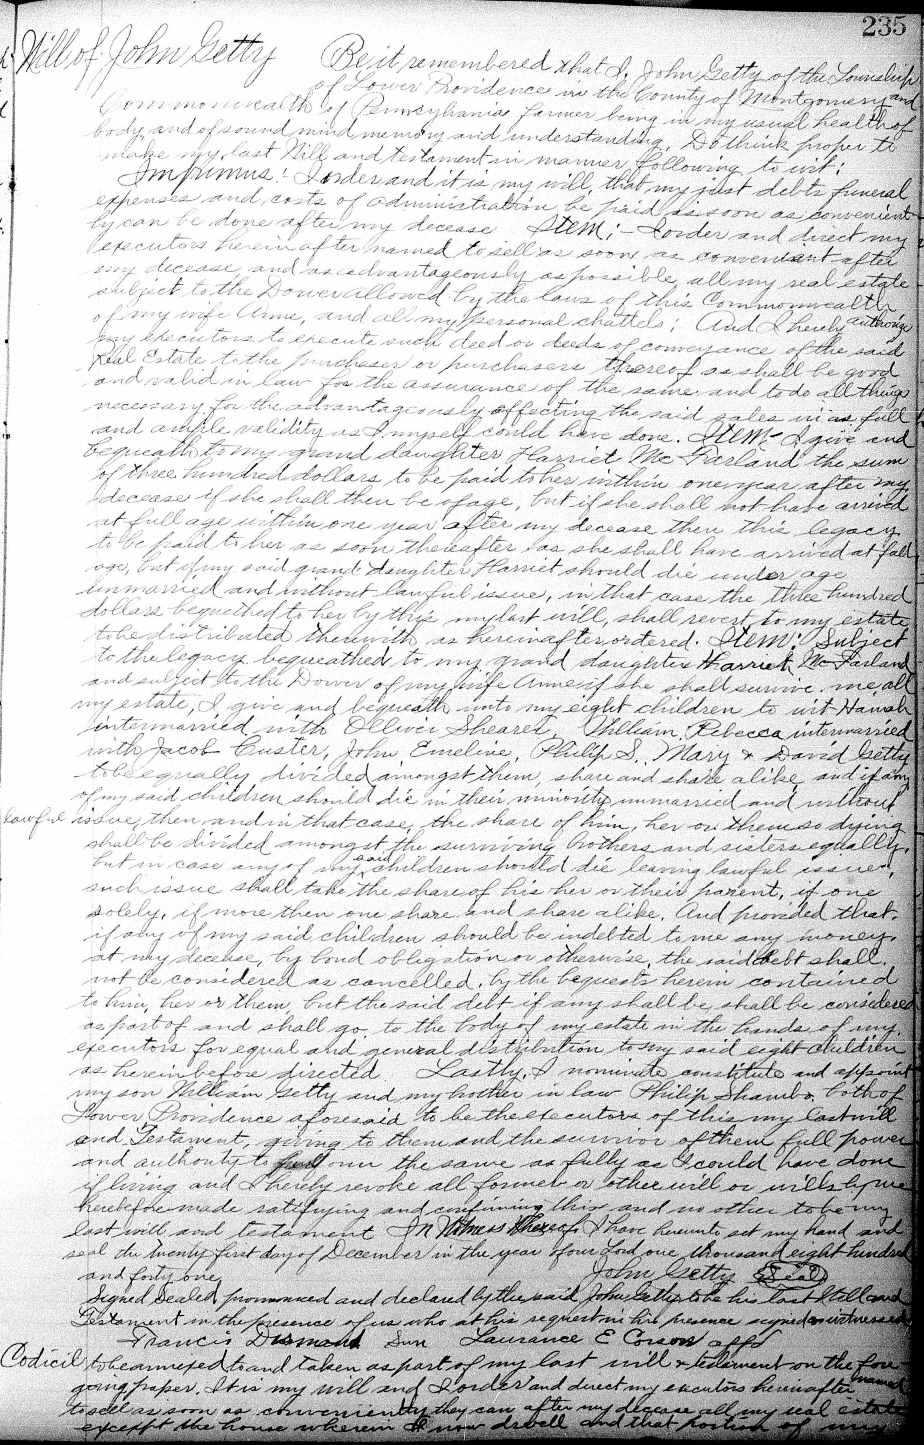 235
Will of John Getty Be it remembered that I, John Getty of the Township
of Lower Providence in the County of Montgomery and
Commonwealth of Pennsylvania farmer being in my usual health of
body and of sound mind memory and understanding. Do think proper to
make my last Will and testament in manner following to wit;
Imprimus:- I order and it is my will, that my just debts funeral
expenses and costs of administration be paid as soon as convenient-
ly can be done after my decease Item;- I order and direct my
executors herein after named to sell as soon as convenient after
my decease, and as advantageously as possible, all my real estate
subject to the Dower allowed by the laws of this Commonwealth
of my wife Anne, and all my personal chattels; And I hereby authorize
my executors to execute such deed or deeds of conveyance of the said
Real Estate to the purchaser or purchasers thereof as shall be good
and valid in law for the assurance of the same and to do all things
necessary for the advantageously effecting the said sales in as full
and ample validity as I myself could have done. Item;- I give and
bequeath to my grand daughter Harriet Mc Farland the sum
of three hundred dollars to be paid to her within one year after my
decease if she shall then be of age, but if she shall not have arrived
at full age within one year after my decease then this legacy
to be paid to her as soon thereafter as she shall have arrived at full
age, but if my said grand daughter Harriet should die under age
unmarried and without lawful issue, in that case the three hundred
dollars bequethed to her by this my last will, shall revert to my estate
to be distributed therewith as hereinafter ordered. Item: Subject
to the legacy bequeathed to my grand daughter Harriet Mc Farland
and subject to the Dower of my wife Anne if she shall survive me, all
my estate, I give and bequeath unto my eight children to wit Hanah
intermarried with Olliver Shearer, William, Rebecca intermarried
with Jacob Custer, John Emeline, Philip S., Mary & David Getty
to be equally divided amongst them, share and share alike, and if any
of my said children should die in their minority unmarried and without
lawful issue, then and in that case, the share of him, her or them so dying
shall be divided amongst the surviving brothers and sisters equally.
but in case any of my said children should die leaving lawful issue,
such issue shall take the share of his her or their parent, if one
solely, if more then one share and share alike. And provided that,
if any of my said children should be indebted to me any money,
at my decease, by bond obligation or otherwise, the said debt shall
not be considered as cancelled, by the bequests herein contained
to him, her or them, but the said debt if any shall be, shall be considered
as part of and shall go to the body of my estate in the hands of my
executors for equal and general distribution to my said eight children
as herein before directed Lastly, I nominate constitute and appoint
my son William Getty and my brother in law Philip Shambo, both of
Lower Providence aforesaid to be the executors of this my last will
and Testament, giving to them and the survivor of them full power
and authority to own the same as fully as I could have done
if living and I hereby revoke all former or other will or wills by me
herebefore made ratifying and confirming this and no other to be my
last will and testament In Witness Whereof, I have hereunto set my hand and
seal the twenty first day of December in the year of our Lord one thousand eight hundred
and forty one John Getty Seal
Signed Sealed, pronounced and declared by the said John Getty to be his last Will and
Testament in the presence of us who at his request in his presence signed as witnesses
Francis Laurance E Corson affd
Codicil to be annexed to and taken as part of my last will & testement on the fore-
going paper. It is my will and I order and direct my executors hereinafter named
to sell as soon as conveniently they can after my decease all my real estate
exceppt the house wherein I now dwell and that portion of my